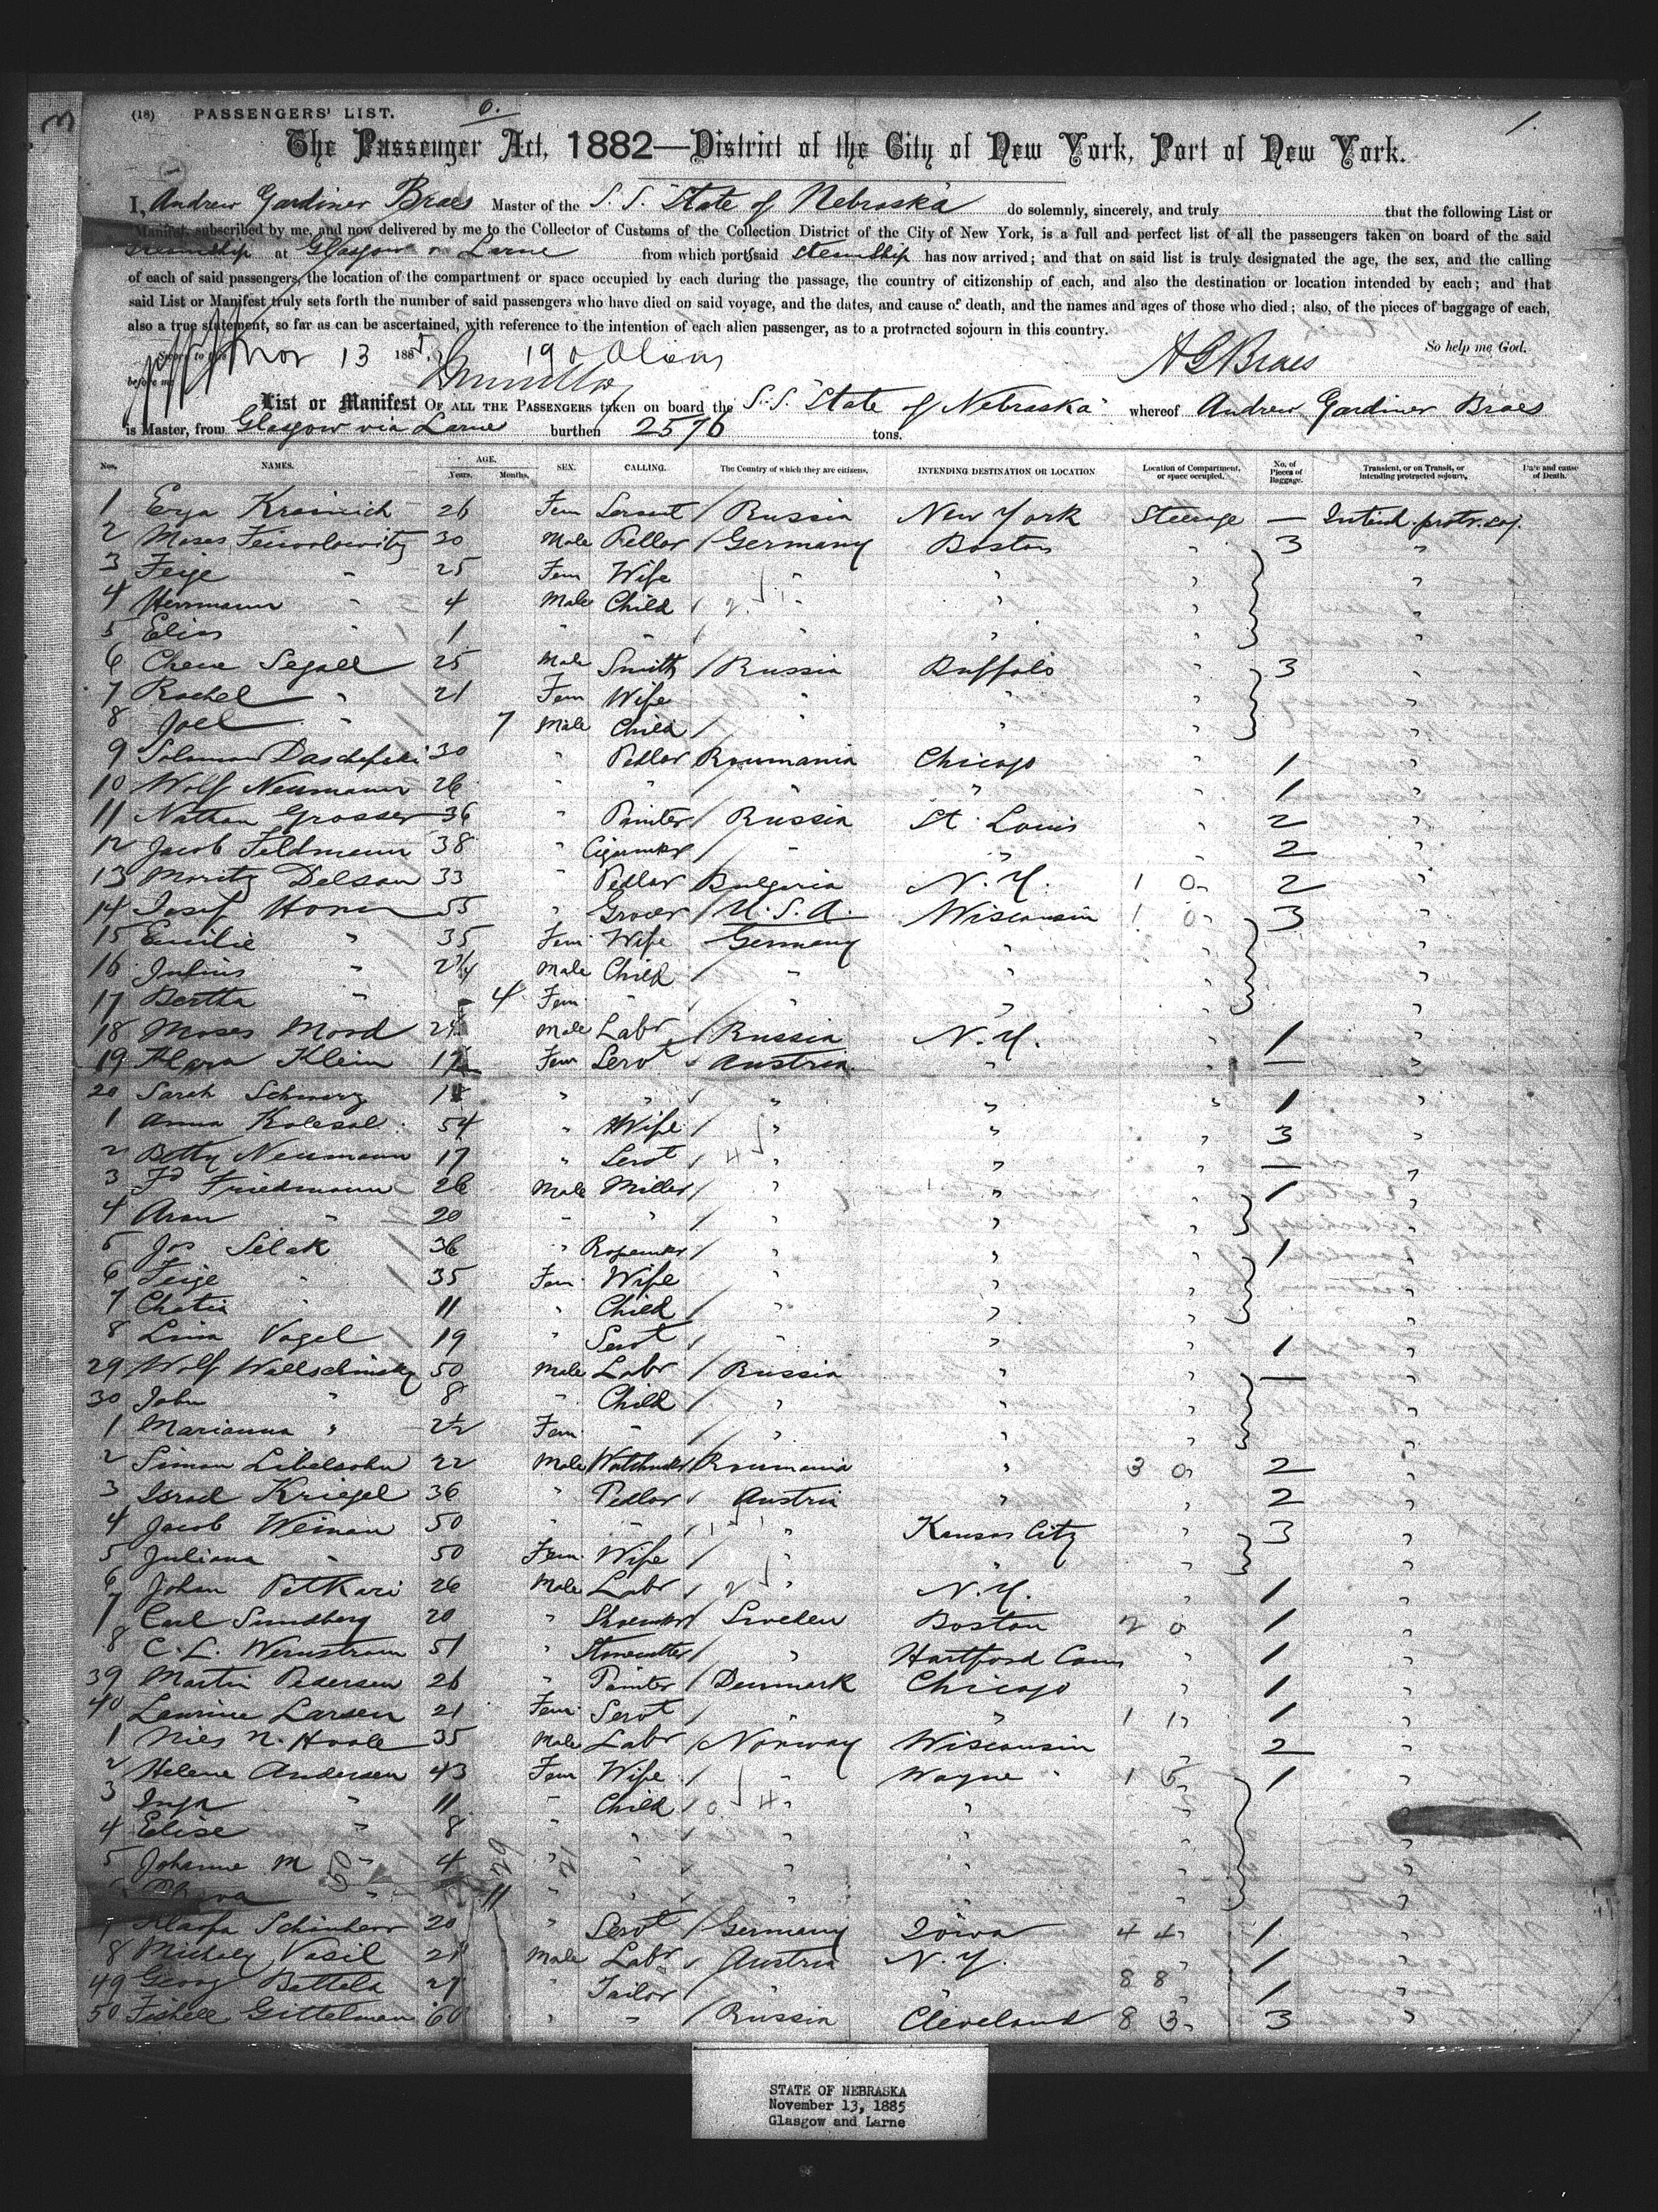 (18) PASSENGERS' LIST. 6. 1.
3
The Passenger Act, 1882—District of the City of New York, Port of New York.
I, Andrew Gardiner Braes Master of the S.S. "State of Nebraska" do solemnly, sincerely, and truly that the following List or
Manifest, subscribed by me, and now delivered by me to the Collector of Customs of the Collection District of the City of New York, is a full and perfect list of all the passengers taken on board of the said
Steamship at Glasgow & Larne from which port said Steamship has now arrived; and that on said list is truly designated the age, the sex, and the calling
of each of said passengers, the location of the compartment or space occupied by each during the passage, the country of citizenship of each, and also the destination or location intended by each; and that
said List or Manifest truly sets forth the number of said passengers who have died on said voyage, and the dates, and cause of death, and the names and ages of those who died; also, of the pieces of baggage of each,
also a true statement, so far as can be ascertained, with reference to the intention of each alien passenger, as to a protracted sojourn in this country.
So help me God.
Sworn to this Nov 13 1885. 190 Aliens A G Braes
before me
List or Manifest OF ALL THE PASSENGERS taken on board the S.S. "State of Nebraska" whereof Andrew Gardiner Braes
is Master, from Glasgow via Larne burthen 2576 tons.
Nos. NAMES. AGE. Years. Months. SEX. CALLING. The Country of which they are citizens. INTENDING DESTINATION OR LOCATION Location of Compartment, or space occupied. No. of Pieces of Baggage. Transient, or on Transit, or intending protracted sojourn. Date and cause of Death.
1 26 Fem Servant / Russia New York Steerage — Intend. protr. soj.
2 Moses 30 Male Pedlar / Germany Boston " 3 "
3 Feige " 25 Fem Wife " " " "
4 Herrmann " 4 Male Child " " " "
5 Elias " 1 " " " " " "
6 Chene Segall 25 Male Smith / Russia Buffalo " 3 "
7 Rachel " 21 Fem Wife " " " "
8 Joel " 7 Male Child / " " " "
9 Solomon 30 " Pedlar Roumania Chicago " 1 "
10 Wolf Neumann 26 " " " " " 1 "
11 Nathan Grosser 36 " Painter / Russia St. Louis " 2 "
12 Jacob Feldmann 38 " Cigarmkr / " " " 2 "
13 Moritz Delson 33 " Pedlar Bulgaria N.Y. 1 0 " 2 "
14 Josef 55 " Grocer / U.S.A. Wisconsin 1 0 " 3 "
15 Emilie " 35 Fem Wife Germany " " "
16 Julius " 2¼ Male Child / " " " "
17 Bertha " 4 Fem " / " " " "
18 Moses Mord Male Labr / Russia N.Y. " 1 "
19 Klein 17 Fem Servt / Austria " " — "
20 Sarah Schwarz 18 " " / " " " 1 "
1 Anna 54 " Wife / " " " 3 "
2 Betty Neumann 17 " Servt / " " " — "
3 Friedmann 26 Male Miller / " " " 1 "
4 Aron " 20 " " / " " " "
5 Jos Selak 36 " Ropemkr / " " " 1 "
6 Feige " 35 Fem Wife " " " "
7 " 11 " Child / " " " "
8 Lina Vogel 19 " Servt / " " " 1 "
29 Wolf 50 Male Labr / Russia " " — "
30 John " 8 " Child / " " " "
1 Marianna " 2½ Fem " / " " " "
2 Simon Libelsohn 22 Male Watchmkr / Roumania " 3 0 " 2 "
3 Israel Kriegel 36 " Pedlar / Austria " " 2 "
4 Jacob 50 " " / " Kansas City " 3 "
5 Juliana " 50 Fem Wife / " " " "
6 Johan 26 Male Labr / " N.Y. " 1 "
7 Carl Sundberg 20 " Shoemkr / Sweden Boston 2 0 " 1 "
8 C. L. Wernstrom 51 " Stonecutter / " Hartford Conn " 1 "
39 Martin Pedersen 26 " Painter / Denmark Chicago " 1 "
40 Laurine Larsen 21 Fem Servt / " " 1 1 " 1 "
1 Nils N. 35 Male Labr / Norway Wisconsin " 2 "
2 Helene Andersen 43 Fem Wife / " Wayne " 1 5 " 1 "
3 Inga " 11 " Child / " " " "
4 Elise " 8 " " / " " " "
5 Johanne M " 4 " " / " " " "
" 11 " " / " " " "
7 20 " Servt / Germany Iowa 4 4 " 1 "
8 Vasil Male Labr / Austria N.Y. " 1 "
49 27 " Tailor / " " 8 8 " 1 "
50 Gittelman 60 " " / Russia Cleveland 8 3 " 3 "
STATE OF NEBRASKA
November 13, 1885
Glasgow and Larne